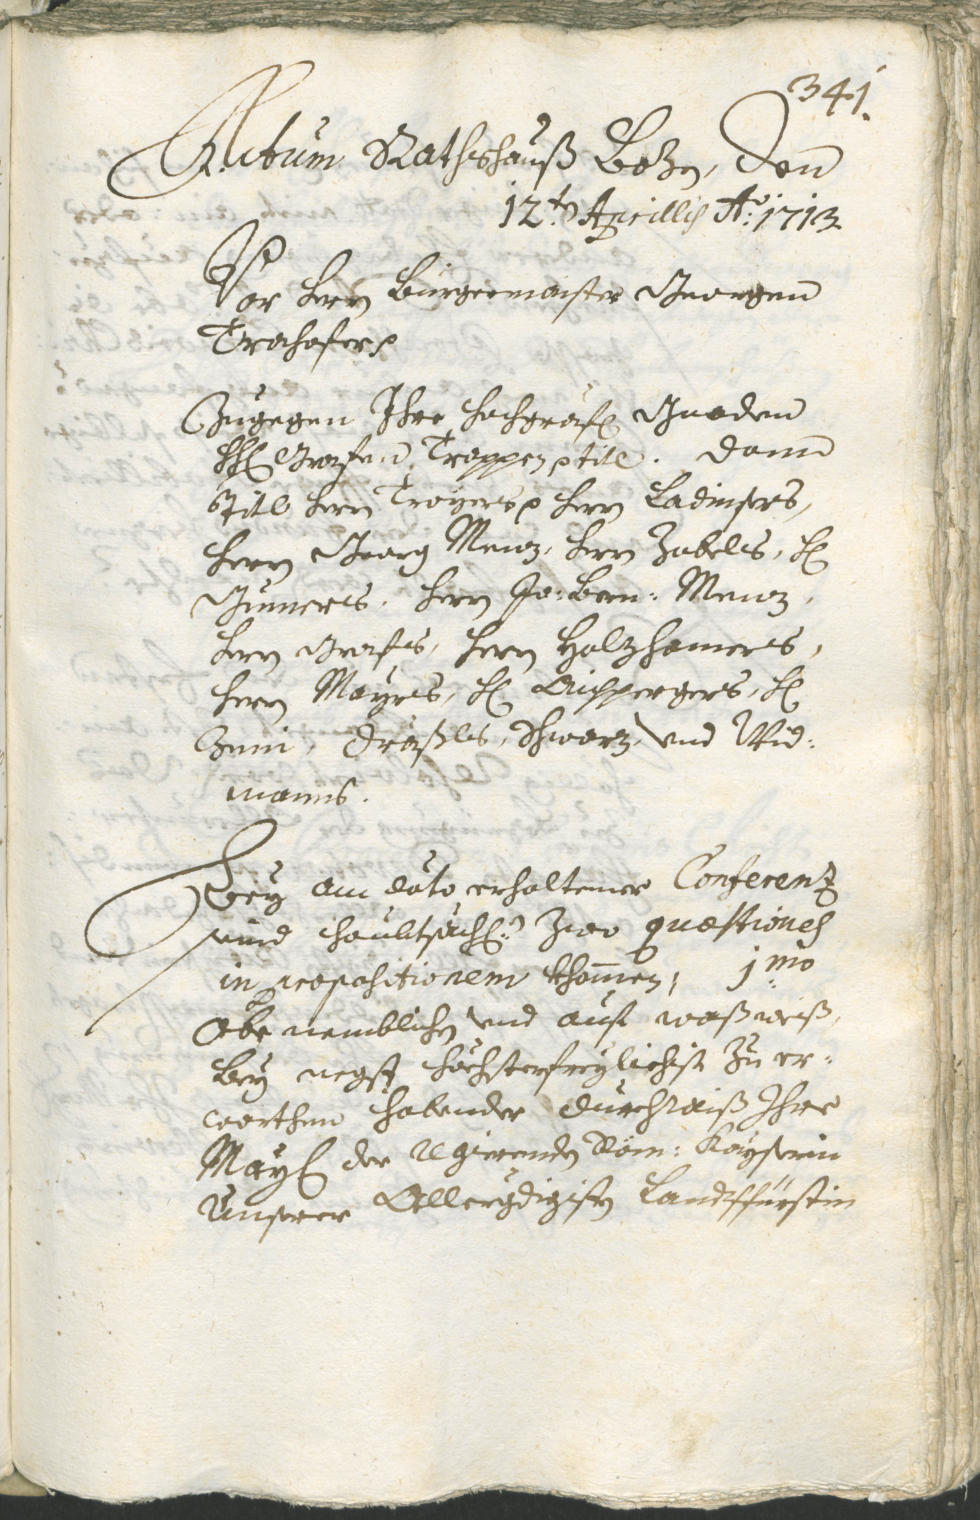 341.
Actum Rathshauß Bozn, den
12.t Aprillis A.o 1713
Vor herrn Burgermaister Georgen
Trahofer p
Zugegen Ihro hochgräfl Gnaden
Grafen Trappen p titl. dann
Titl herrn Troyers p herrn Ladinsers,
herrn Georg Menz, herrn Zabels, H
Gumers, herrn Jo: Bern: Menz,
herrn Grafs, herrn Holzhamers,
herrn Mayrs, H Aichpergers, H
Zeni, Dräxls, Schwarz, und Wid:
manns.
Bey am dato erhaltener Conferenz
seind haubtsächl: zwo quæstiones
in propositionem khomen; 1mo
Obe nemblichen und auf waß weiß,
bey negst höchsterfreylichist zu er:
warthen habender durchraiß Ihro
Mayl der Regierenden Röm: Kayserin
Unserer Allergdigisten Landtsfürstin